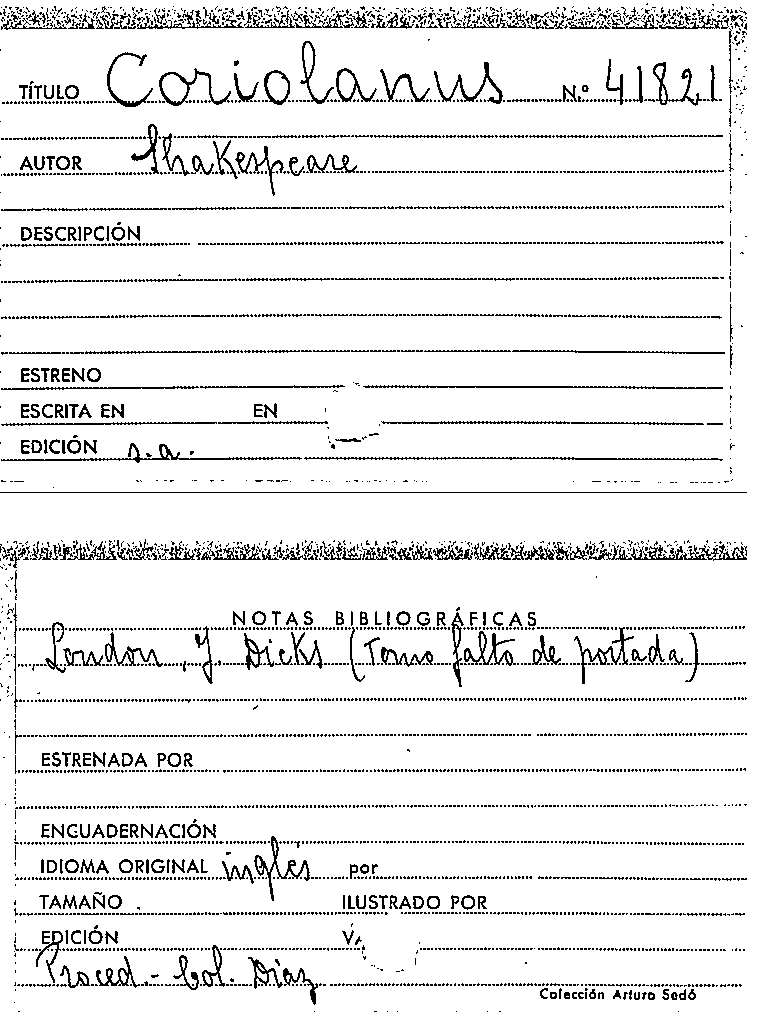 TÍTULO Coriolanus N.º 41821
AUTOR Shakespeare
DESCRIPCIÓN
ESTRENO
ESCRITA EN EN
EDICIÓN s.a.
NOTAS BIBLIOGRÁFICAS
London, J. Dicks (Tomo falto de portada)
ESTRENADA POR
ENCUADERNACIÓN
IDIOMA ORIGINAL inglés por
TAMAÑO ILUSTRADO POR
EDICIÓN
Proced.- Col. Díaz
Colección Arturo Sedó